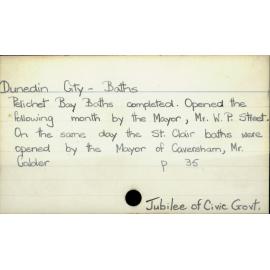 Dunedin City - Baths
Pelichet Bay Baths completed. Opened the
following month by the Mayor, Mr. W. P. Street.
On the same day the St. Clair baths were
opened by the Mayor of Caversham, Mr.
Calder p 35
Jubilee of Civic Govt.